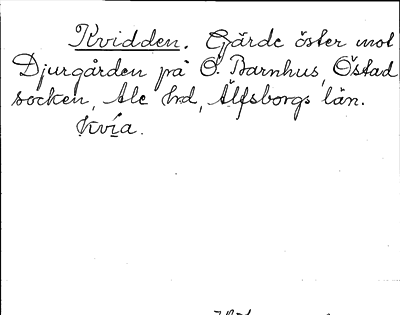 Kvidden. Gärde öster mot
Djurgården på Ö. Barnhus, Östad
socken, Ale hrd, Älfsborgs län.
Kvía.